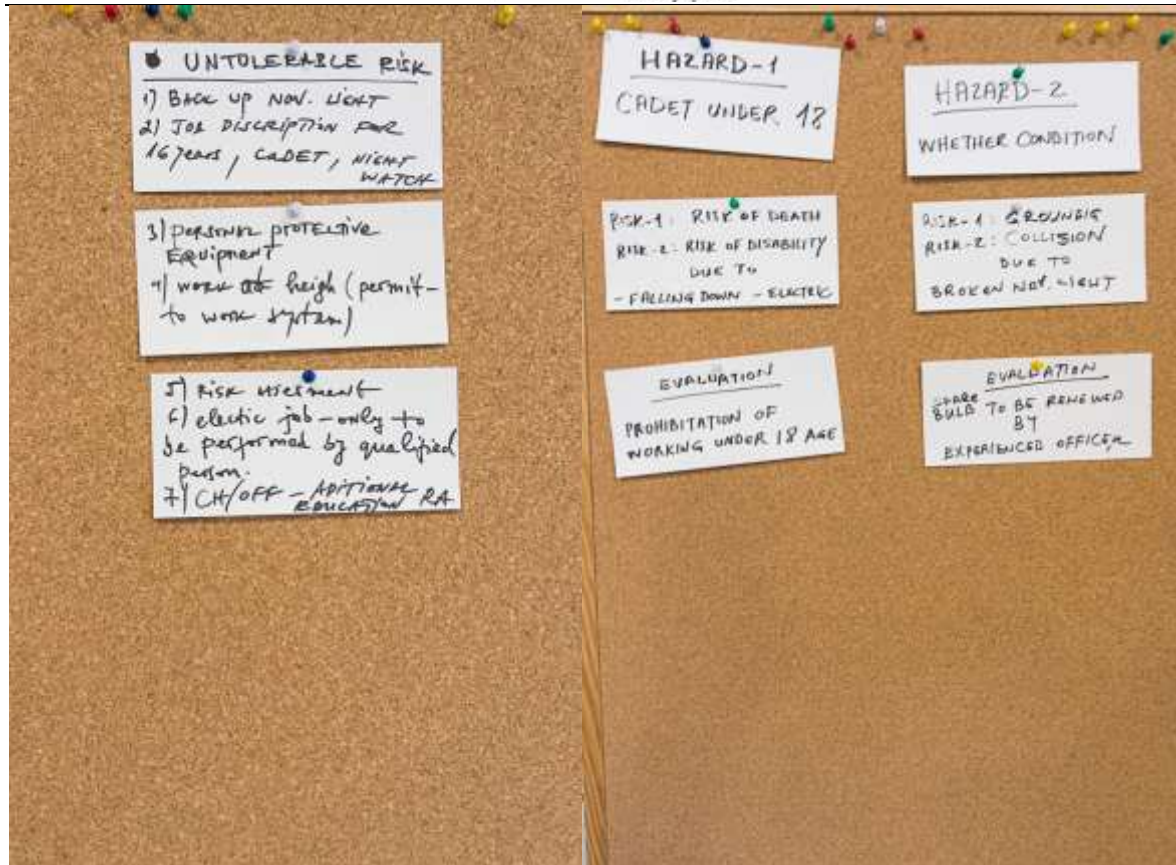 UNTOLERABLE RISK
1) BACK UP NOV. LIGHT
2) JOB DISCRIPTION FOR
16 years, CADET, NIGHT
WATCH
3) PERSONAL PROTECTIVE
EQUIPMENT
4) WORK at heigh (permit-
to work system)
5) RISK
6) electic job - only to
be performed by qualified
person.
7) CH/OFF - ADITIONAL
EDUCATION RA
HAZARD-1
CADET UNDER 18
RISK-1: RISK OF DEATH
RISK-2: RISK OF DISABILITY
DUE TO
- FALLING DOWN - ELECTRIC
EVALUATION
PROHIBITATION OF
WORKING UNDER 18 AGE
HAZARD-2
WHETHER CONDITION
RISK-1:
RISK-2: COLLISION
DUE TO
BROKEN NAV. LIGHT
EVALUATION
SPARE
BULB TO BE RENEWED
BY
EXPERIENCED OFFICER